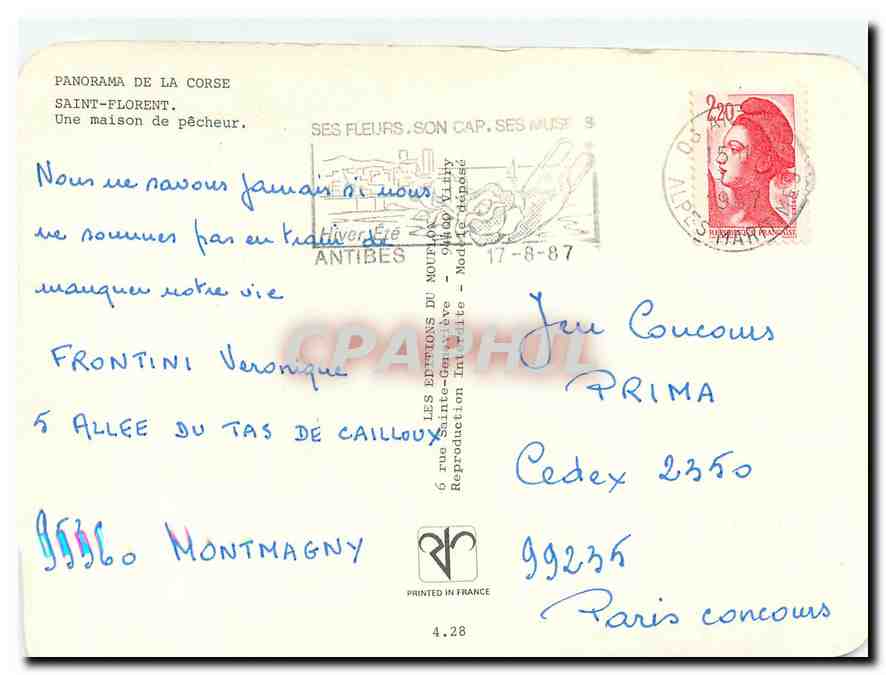 PANORAMA DE LA CORSE
SAINT-FLORENT.
Une maison de pêcheur.
SES FLEURS. SON CAP. SES MUSÉES
Hiver Été
ANTIBES
17-8-87
2,20
ALPES-MARITIMES
Nous ne savons jamais si nous
ne sommes pas en train de
manquer notre vie
FRONTINI Veronique
5 ALLEE DU TAS DE CAILLOUX
95360 MONTMAGNY
LES EDITIONS DU MOUFLON
6 rue Sainte-Geneviève - 94400 Vitry
Reproduction Interdite - Modèle déposé
CPAPHIL
Jeu Concours
PRIMA
Cedex 2350
99235
Paris concours
PRINTED IN FRANCE
4.28